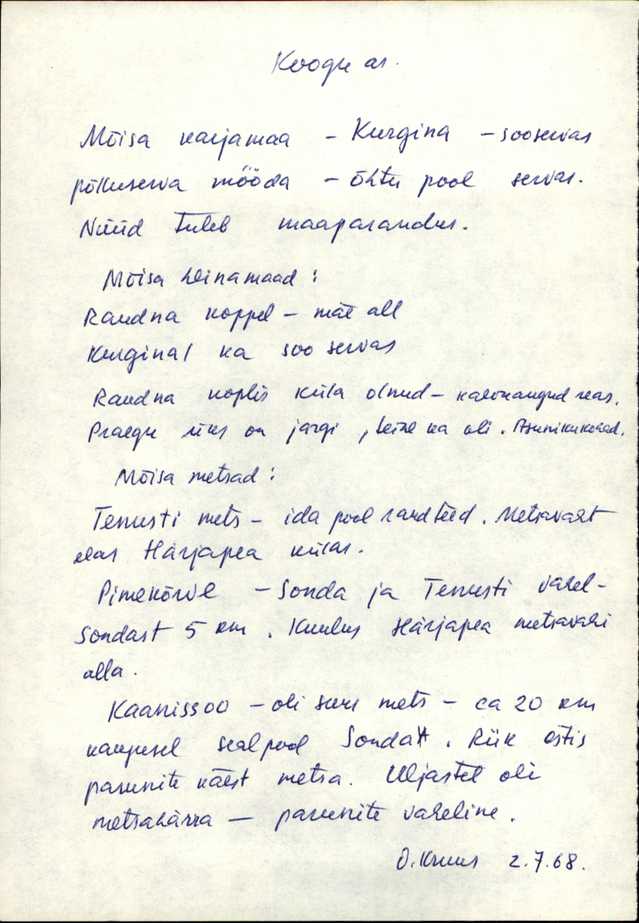 Koogu as.
Mõisa karjamaa - Kurgina - sooservas
põlluserva mööda - õhtu pool servas.
Nüüd tuleb maaparandus.
Mõisa heinamaad:
Raudna koppel - mäe all
Kurginal ka soo servas
Raudna koplis küla olnud - kaevuaugud reas.
Praegu üks on järgi, teine ka oli. Asunikukohad.
Mõisa metsad:
Tennusti mets - ida pool raudteed. Metsavaht
elas Härjapea külas.
Pimekõrve - Sonda ja Tennusti vahel -
Sondast 5 km. Kuulus Härjapea metsavahi
alla.
Kaanissoo - oli suur mets - ca 20 km
kaugusel sealpool Sondat. Riik ostis
parunite käest metsa. Uljastel oli
metsahärra - parunite vaheline.
O. Kruus 2.7.68.